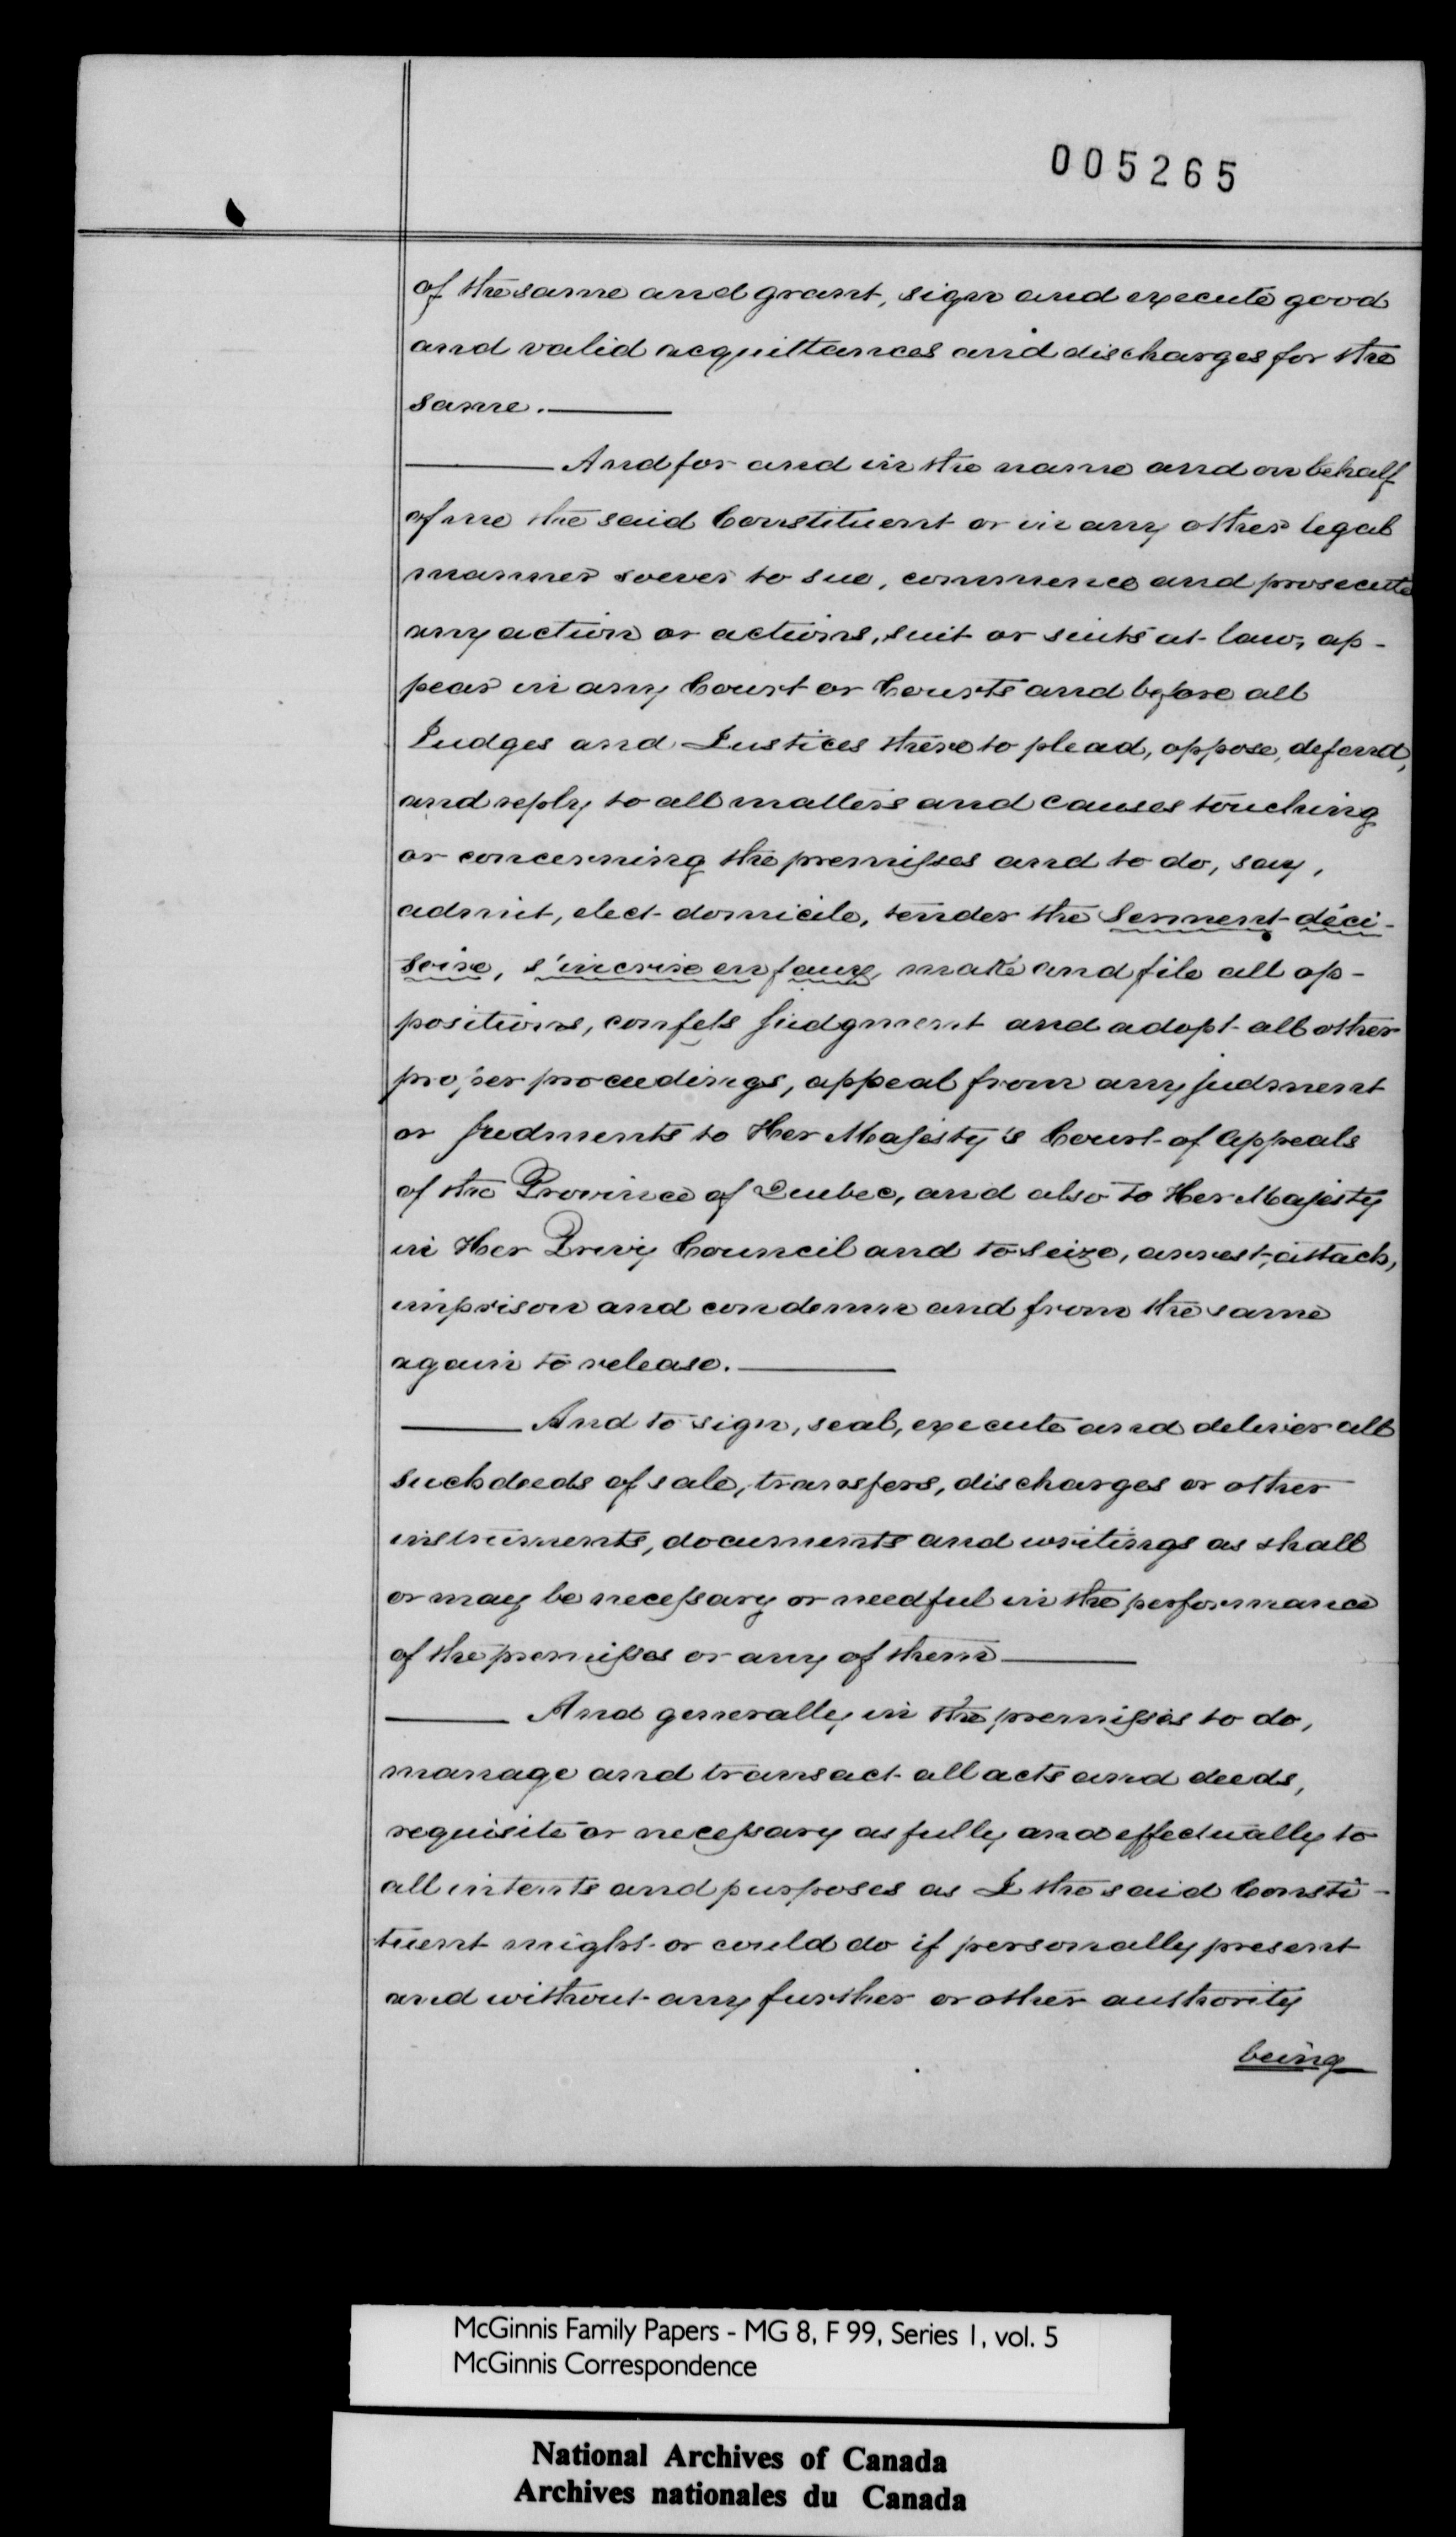 005265
of the same and grant, sign and execute good
and valid acquittances and discharges for the
same.
And for and in the name and on behalf
of me the said Constituent or in any other legal
manner soever to sue, commence and prosecute
any action or actions, suit or suits at law, ap-
pear in any Court or Courts and before all
Judges and Justices there to plead, oppose, defend,
and reply to all matters and causes touching
or concerning the premisses and to do, say,
admit, elect domicile, tender the Serment déci-
soire, s'incrire en faux, make and file all op-
positions, confess judgment and adopt all other
proper proceedings, appeal from any judment
or judments to Her Majesty's Court of Appeals
of the Province of Quebec, and also to Her Majesty
in Her Privy Council and to seize, arrest, attach,
imprison and condemn and from the same
again to release.
And to sign, seal, execute and deliver all
such deeds of sale, transfers, discharges or other
instruments, documents and writings as shall
or may be necessary or needful in the performance
of the premisses or any of them
And generally in the premisses to do,
manage and transact all acts and deeds,
requisite or necessary as fully and effectually to
all intents and purposes as I the said Consti-
tuent might or could do if personally present
and without any further or other authority
being
McGinnis Family Papers - MG 8, F 99, Series 1, vol. 5
McGinnis Correspondence
National Archives of Canada
Archives nationales du Canada